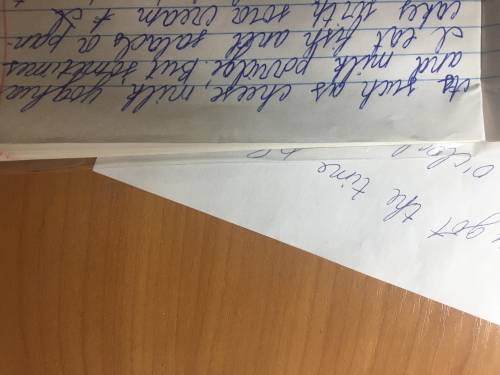 ts such as cheese, milk, yoghur
and milk porridge. But sometimes
I eat fish and salads a pan-
cakes with sora cream
got the time